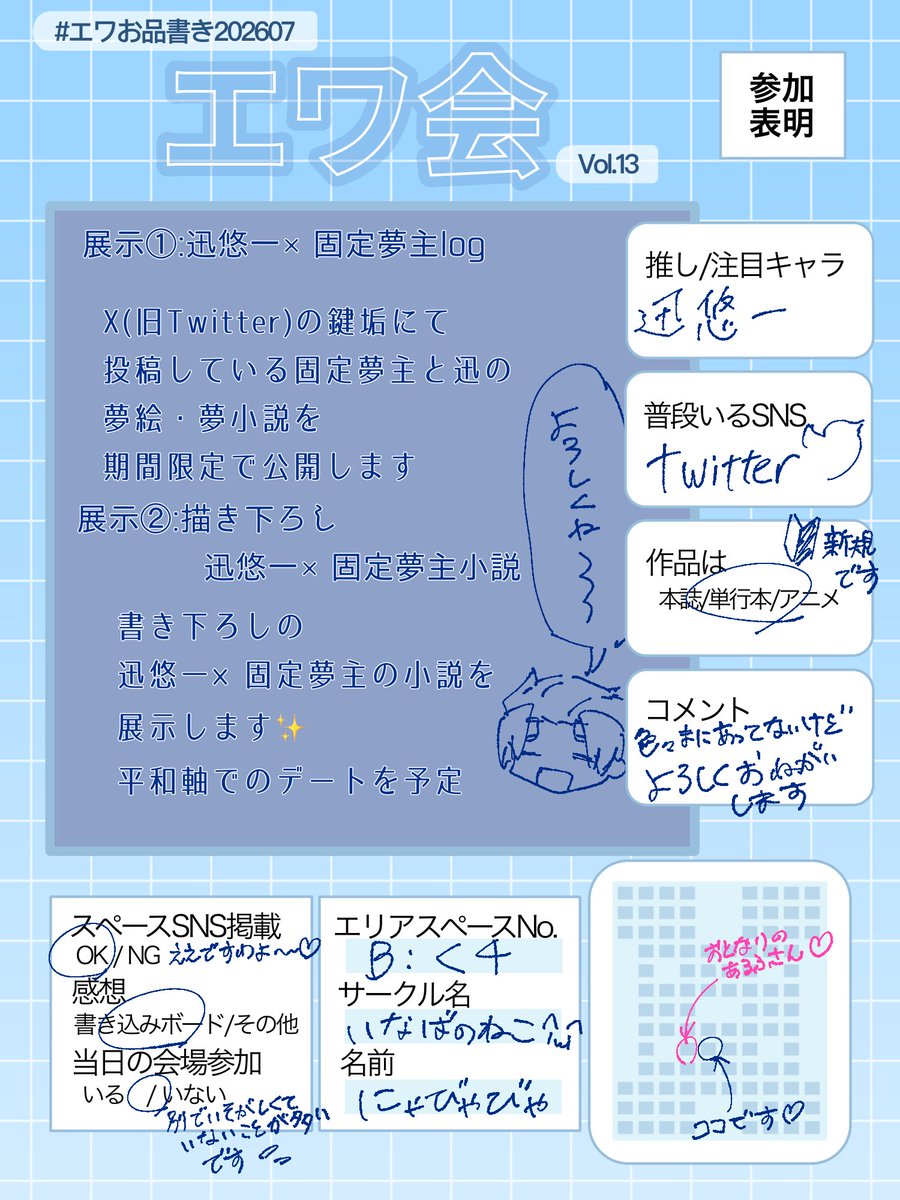 #エワお品書き202607
エワ会
Vol.13
参加
表明
展示①:迅悠一×固定夢主log
X(旧Twitter)の鍵垢にて
投稿している固定夢主と迅の
夢絵・夢小説を
期間限定で公開します
展示②:描き下ろし
迅悠一×固定夢主小説
書き下ろしの
迅悠一×固定夢主の小説を
展示します✨
平和軸でのデートを予定
よろしくね〜〜〜
推し/注目キャラ
迅悠一
普段いるSNS
twitter
作品は
本誌/単行本/アニメ
新規
です
コメント
色々まにあってないけど
よろしくおねがい
します
スペースSNS掲載
OK / NG ええですわよ〜〜♡
感想
書き込みボード/その他
当日の会場参加
いる / いない
別でいそがしくて
いないことが多い
です
エリアスペースNo.
B:く4
サークル名
いなばのねこ
名前
にゃびゃびゃ
おとなりの
あるふさん♡
ココです♡